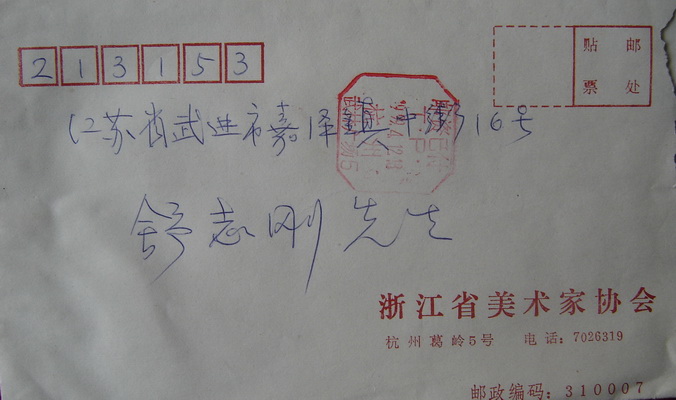 213153
贴 邮
票 处
江苏省武进市嘉泽镇中街16号
舒志刚 先生
浙江省美术家协会
杭州葛岭5号 电话:7026319
邮政编码:310007